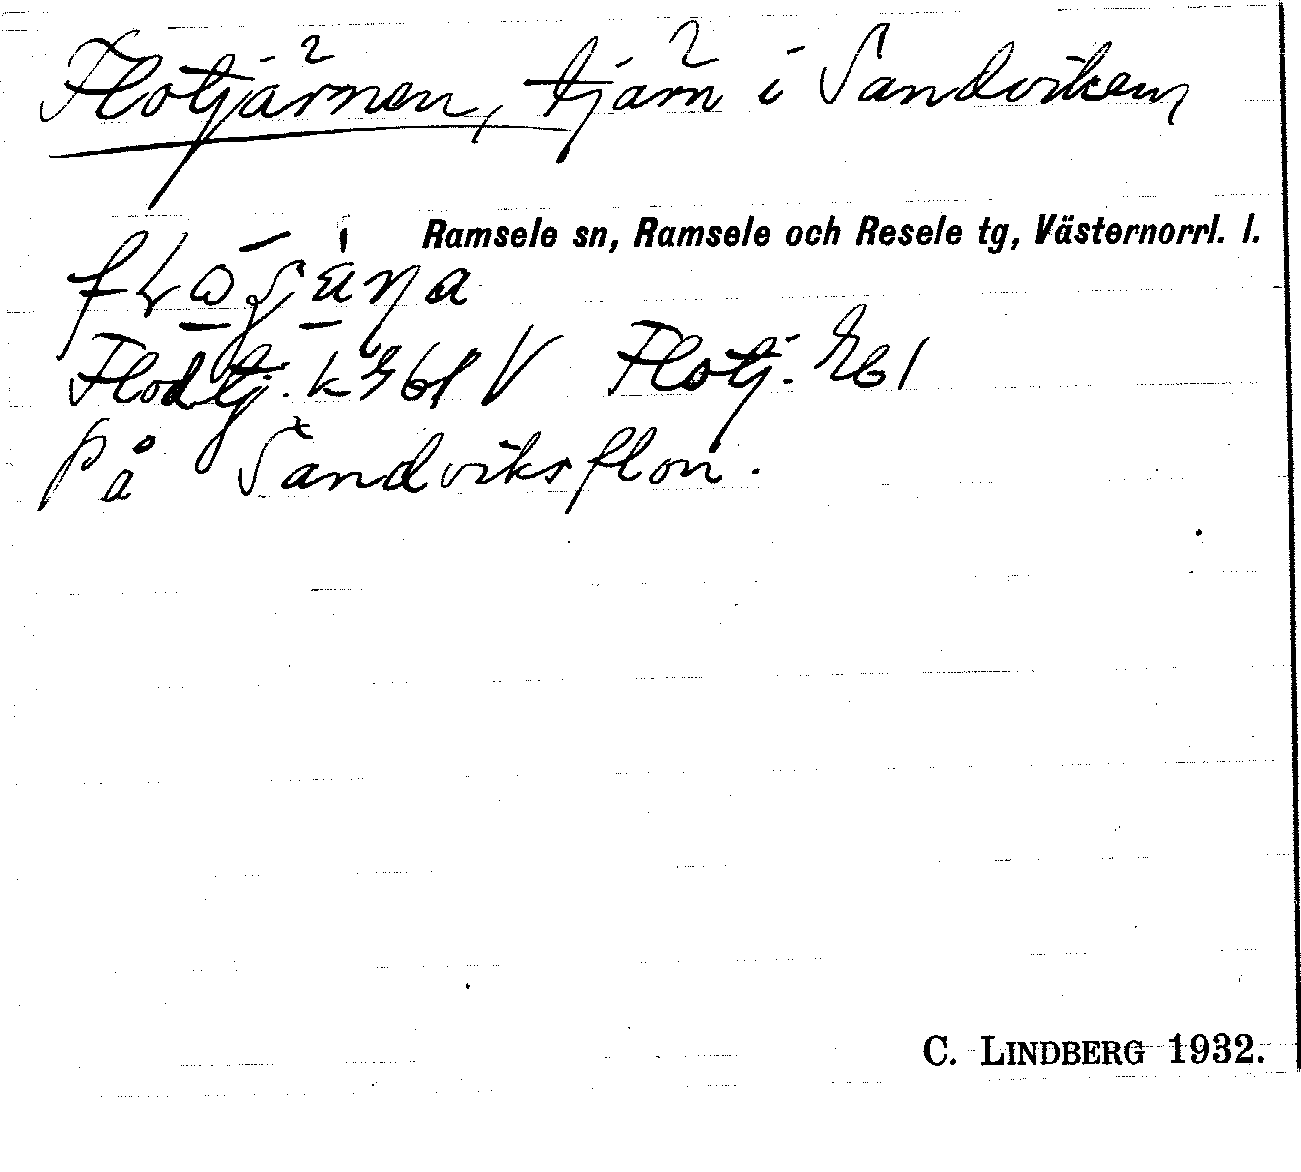 Flotjärnen, tjärn i Sandviken
Ramsele sn, Ramsele och Resele tg, Västernorrl. l.
Flodtj. k V Flotj. Eb 1
på Sandviksflon.
C. LINDBERG 1932.